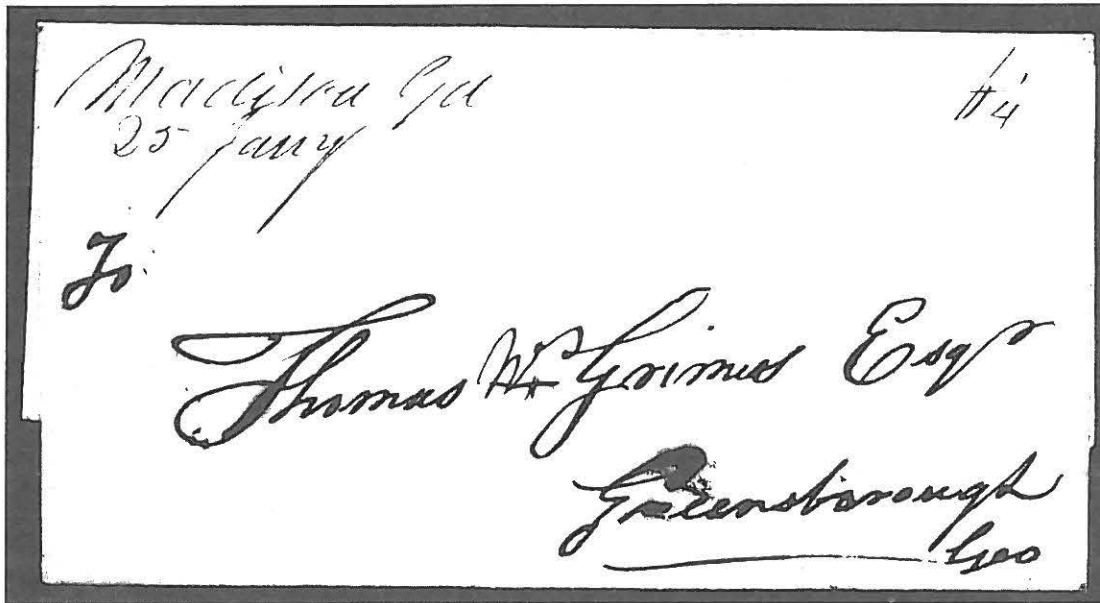 Madison Ga
25 Jany
To
Thomas W Grimes Esqr
Greensborough
Geo